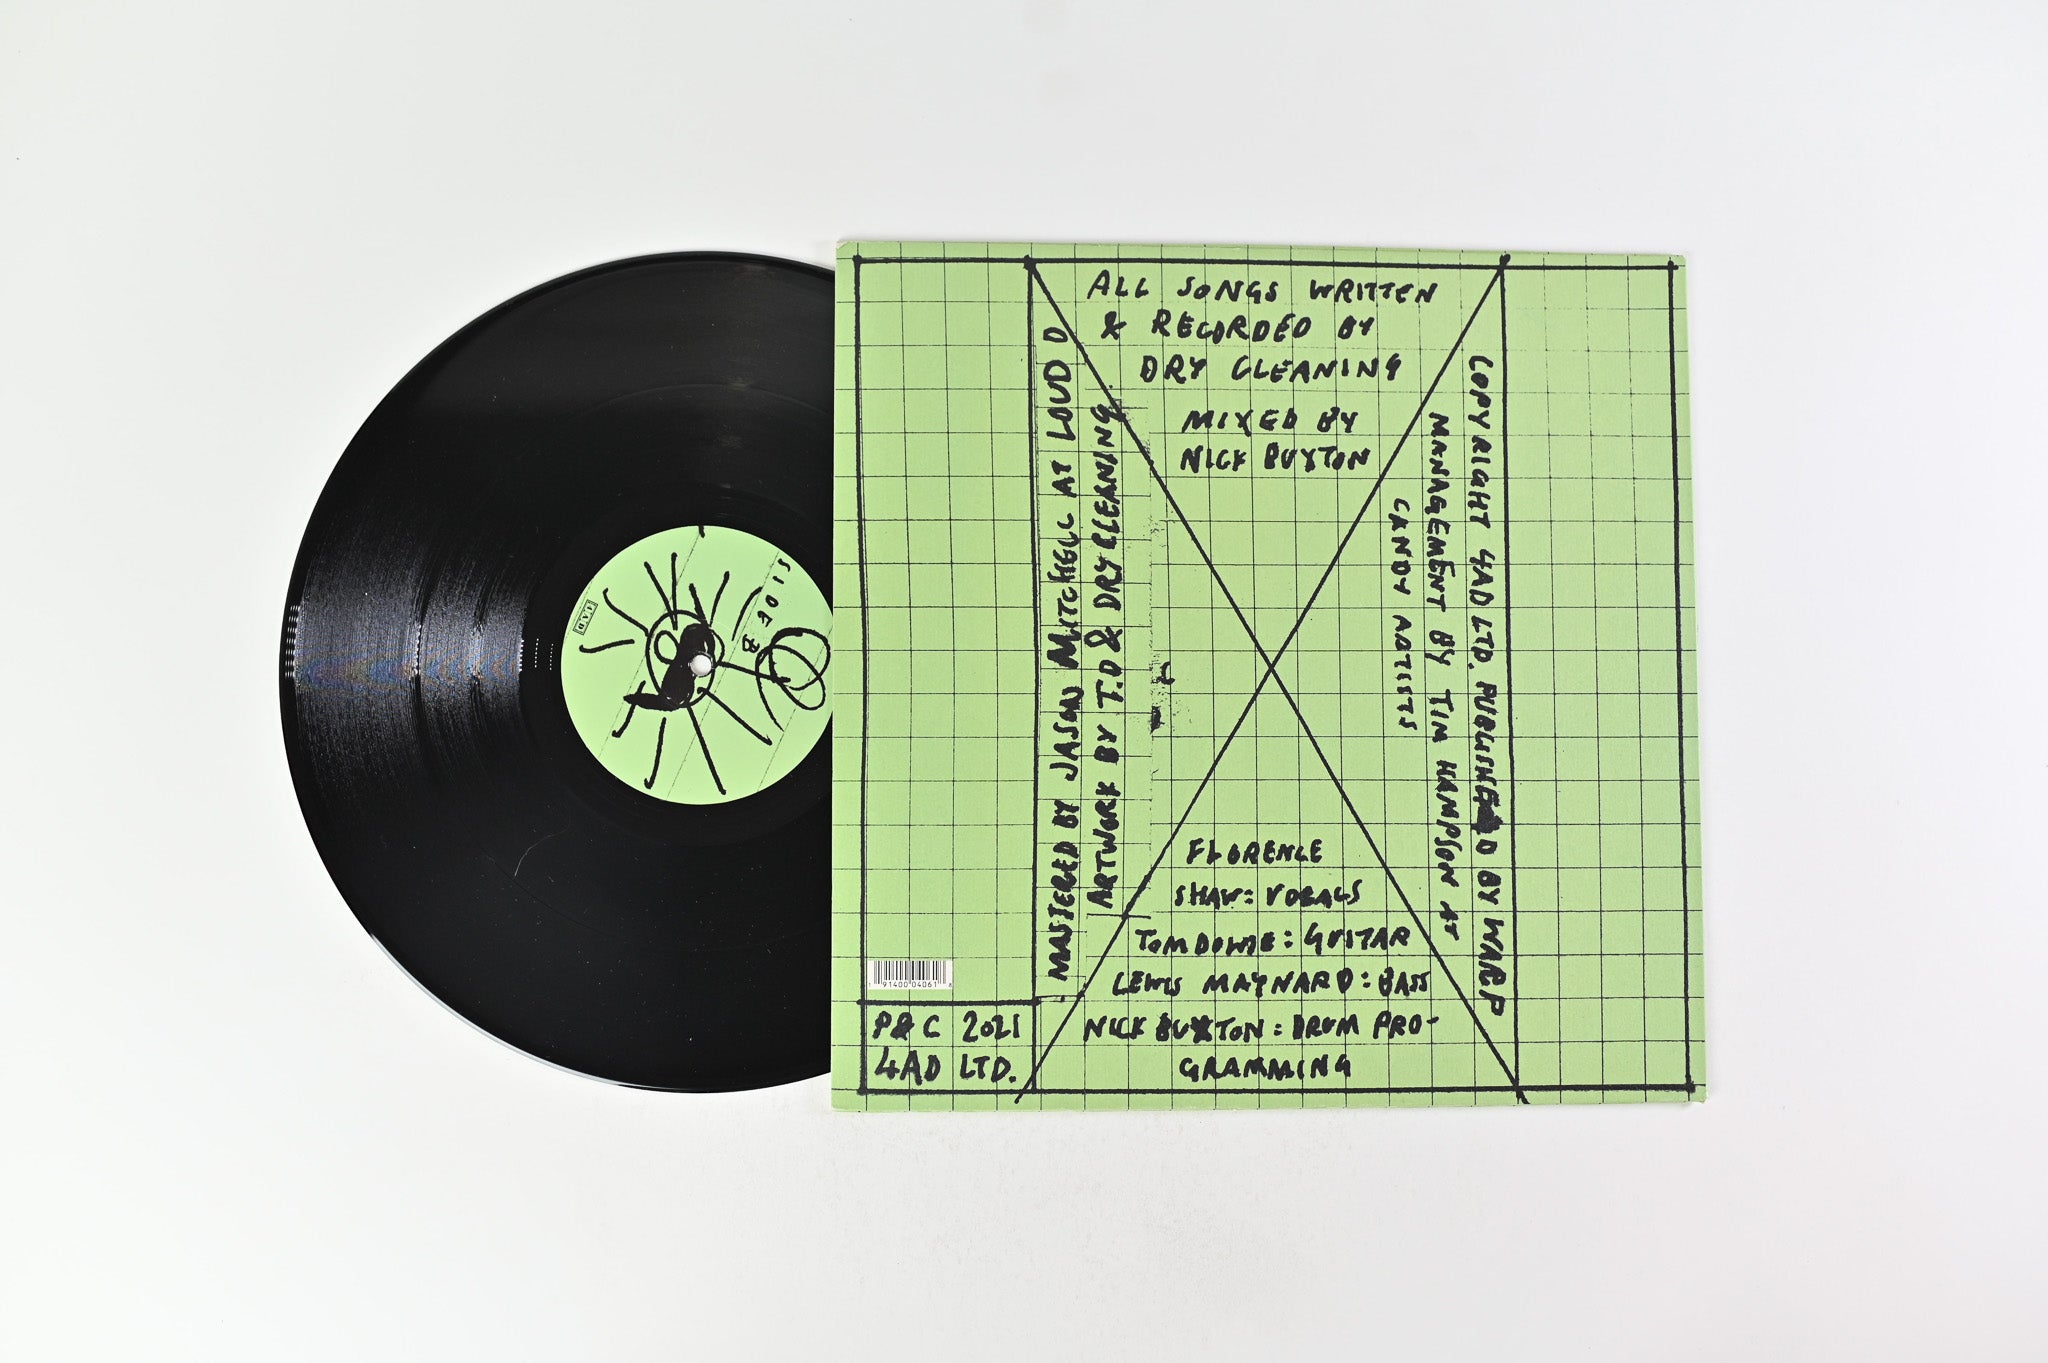 ALL SONGS WRITTEN
& RECORDED BY
DRY CLEANING
MIXED BY
NICK BUXTON
MASTERED BY JASON MITCHELL AT LOUD D
ARTWORK BY T.D & DRY CLEANING
COPYRIGHT 4AD LTD. PUBLISHED BY WARP
MANAGEMENT BY TIM HAMPSON AT
CANDY ARTISTS
FLORENCE
SHAW: VOCALS
TOM DOWSE: GUITAR
LEWIS MAYNARD: BASS
NICK BUXTON: DRUM PRO-
GRAMMING
1 91400 04061 8
P&C 2021
4AD LTD.
SIDE B
4AD